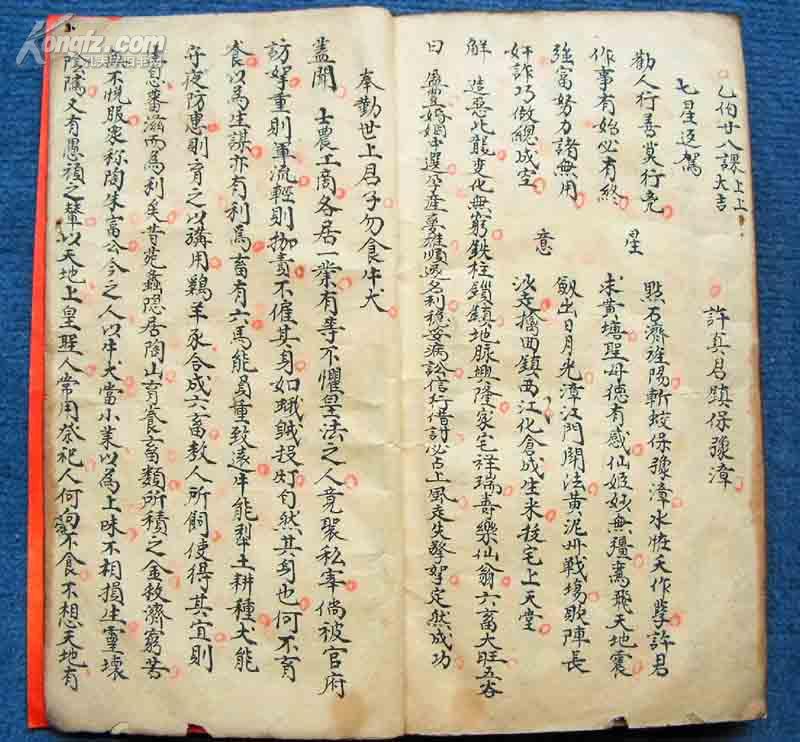 乙伯廿八課上上大吉
許真君鎮保豫漳
七星逕駕
星
意
勸人行善莫行兇
作事有始必有終
強富努力諸無用
奸詐巧做總成空
點石濟旌陽斬蛟保豫漳水恠天作孽許君
求黃塘聖母德有感仙姬妙無彊鸞飛天地震
劔出日月光漳江門開法黃泥卅戰場敗陣長
沙走擒回鎮西江化倉成生米拔宅上天堂
解 造惡比龍变化無窮鉄柱鎖鎮地脉興隆家宅祥瑞壽樂仙翁六畜大旺五谷
曰 盛豐婚姻中選孕產要难順遇名利穩妥病訟信行借討必占上風走失拏挐定然成功
奉勸世上君子勿食牛犬
蓋聞 士農工商各居一業有等不懼皇法之人竟聚私宰倘被官府
訪挐重則軍流輕則枷責不催其身如蛾投灯自然其身也何不育
食以為生謀亦有利焉畜有六馬能負重致遠牛能犁土耕種犬能
守夜防患則育之以講用鷄羊豕合成六畜教人所飼使得其宜則
息蕃滋而為利矣昔范蠡隱居陶山育養畜類所積之金救濟窮苦
不悅服衆称陶朱富公今之人以牛犬當小業以為上味不相損生靈壞
陰隲又有愚頑之輩以天地上皇聖人常用祭祀人何勾不食不想天地有
Kongfz.com